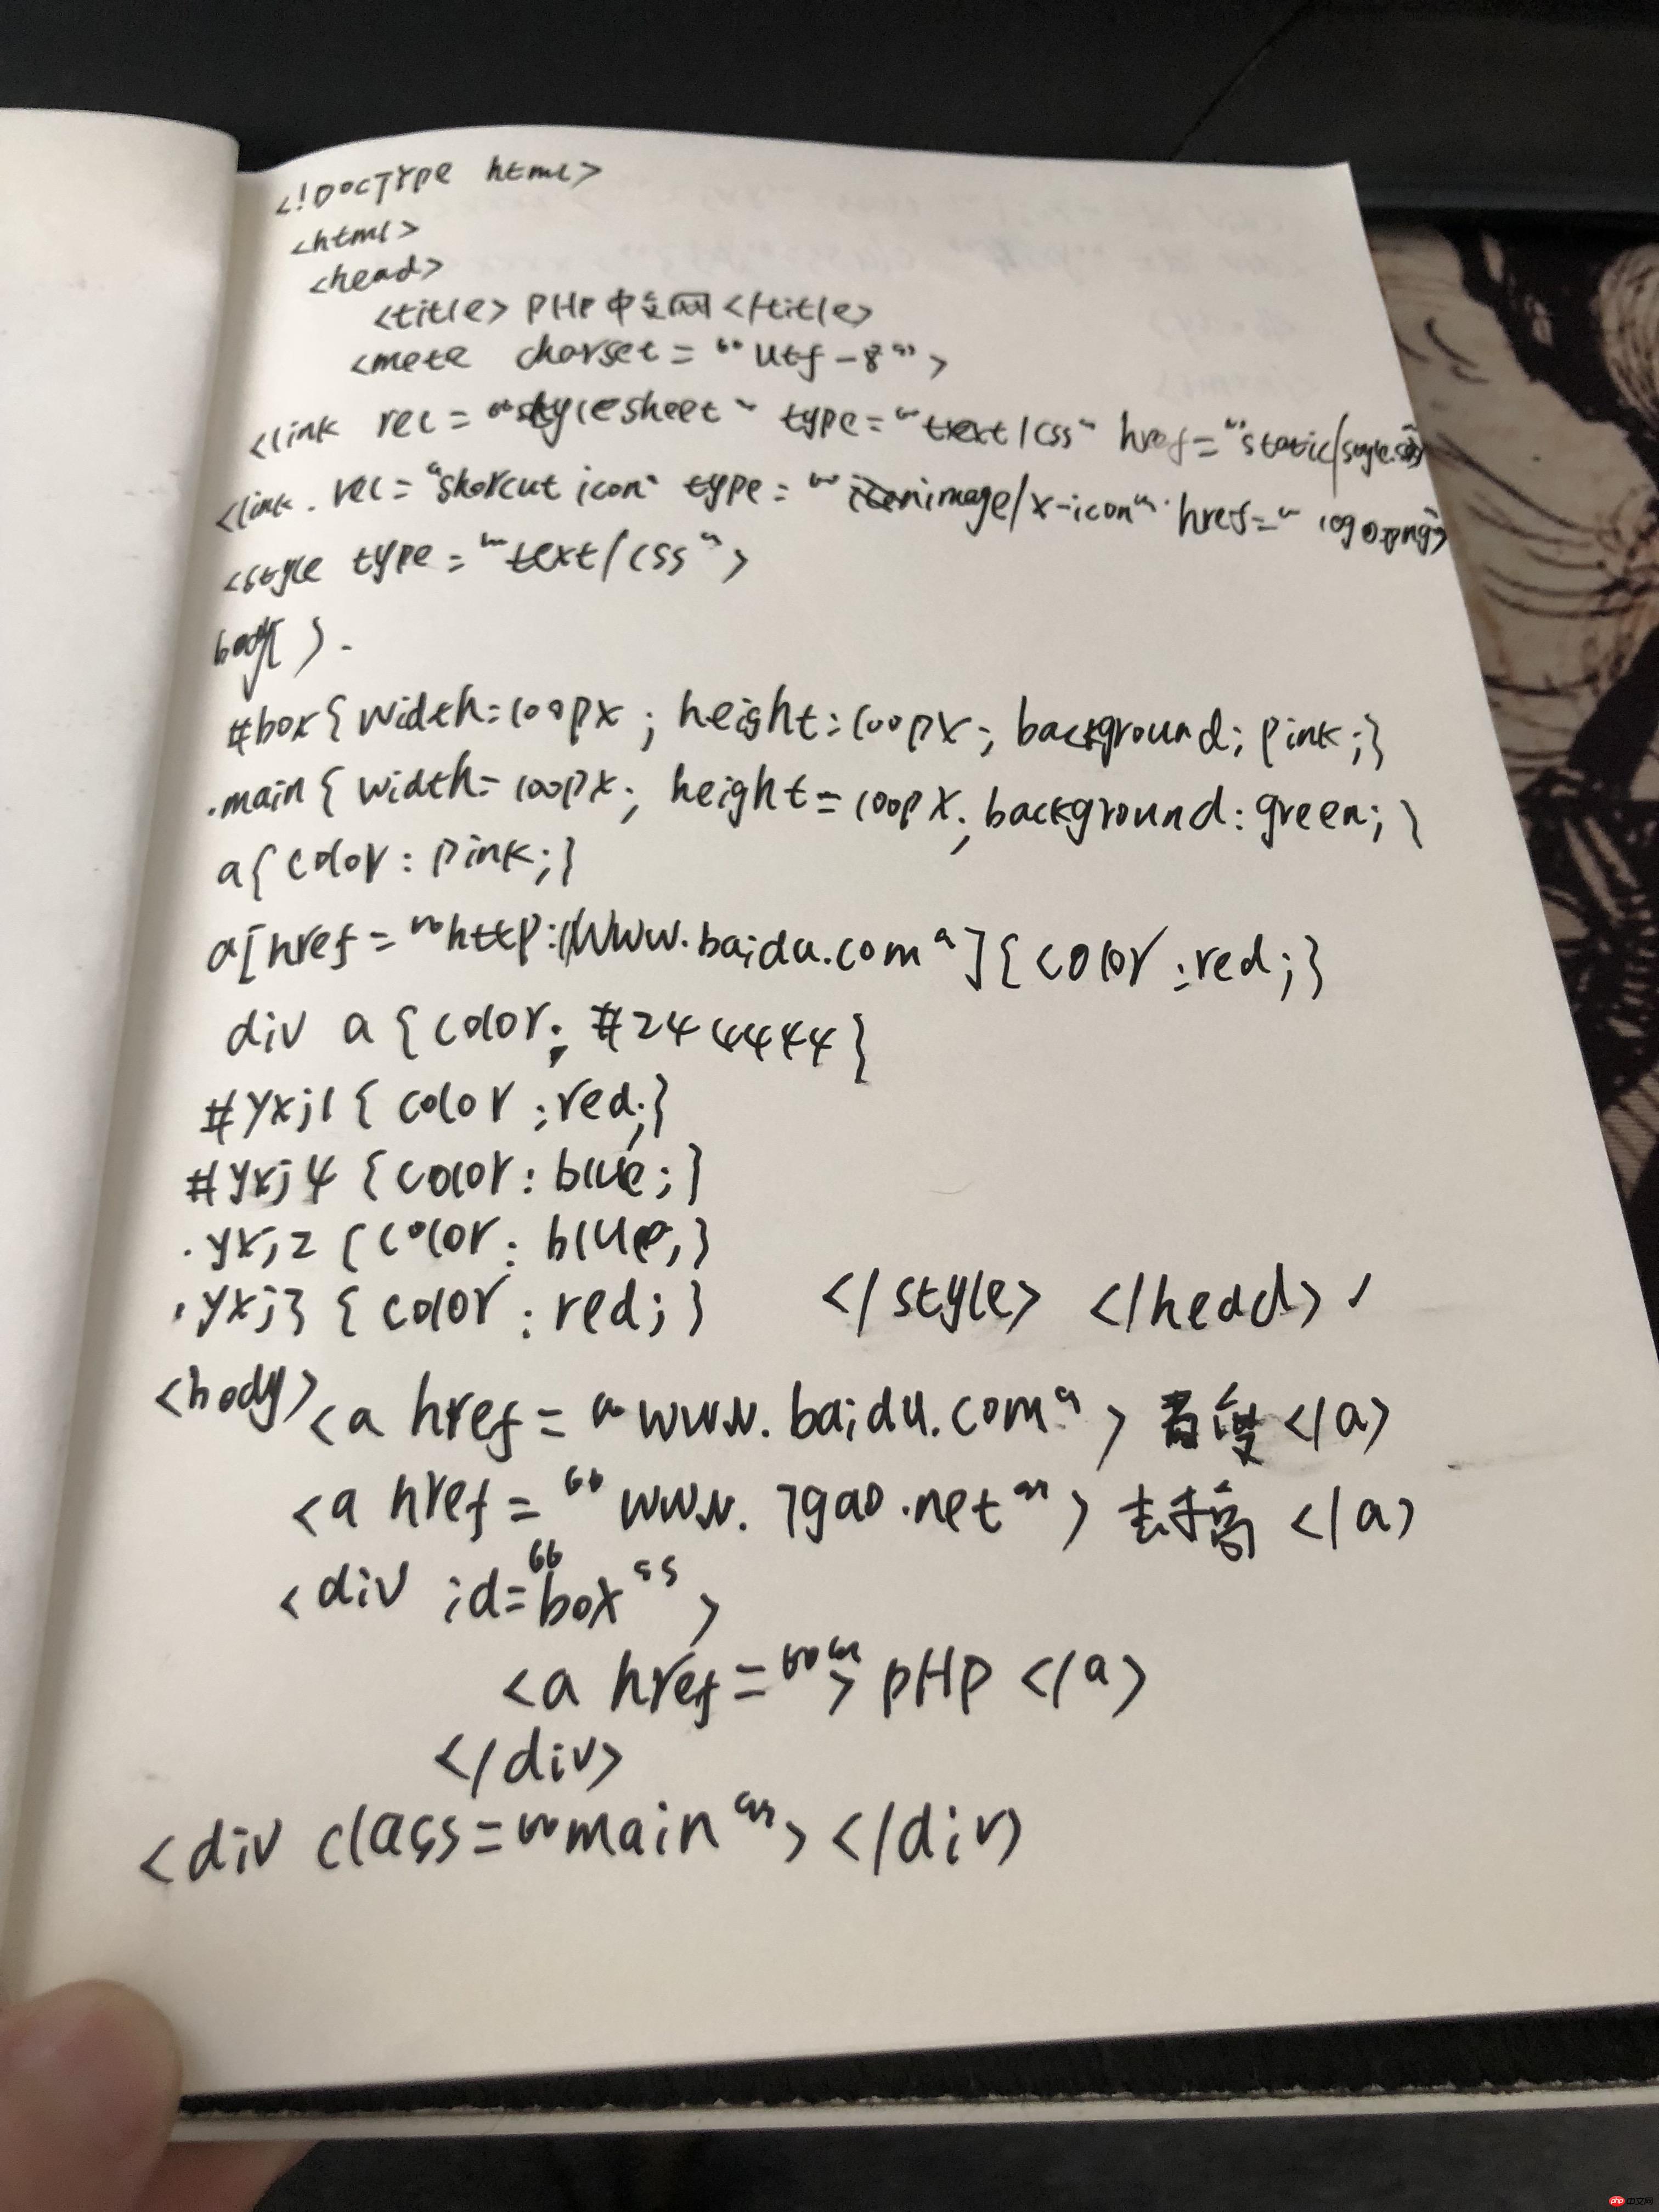 <!DOCTYPE html>
<html>
<head>
<title> PHP中文网 </title>
<mete charset = "utf-8">
<link rel = "stylesheet" type = "text/css" href = "static/style.css">
<link rel = "shorcut icon" type = "image/x-icon" href = "logo.png">
<style type = "text/css">
body{ }
#box{ width=100px ; height=100px; background: pink;}
.main{ width=100px; height=100px; background: green; }
a{ color: pink;}
a[href="http://www.baidu.com"]{color:red;}
div a {color: #244444}
#yxj1 { color :red;}
#yxj4 {color: blue;}
.yxj2 {color: blue;}
.yxj3 { color :red; } </style> </head>
<body> <a href = "www.baidu.com"> 百度 </a>
<a href = "www. 7gao.net"> 去手高 </a>
<div id="box">
<a href = ""> PHP </a>
</div>
<div class="main"></div>
php 中文网